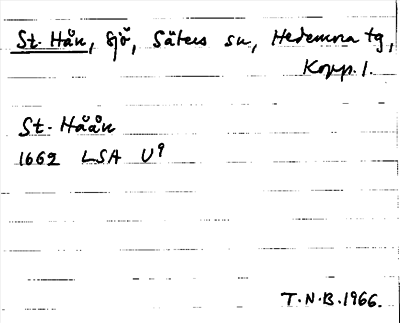 St. Hån, sjö, Säters sn, Hedemora tg,
Kopp. l.
St. Håån
1662 LSA U9
T.N.B. 1966.